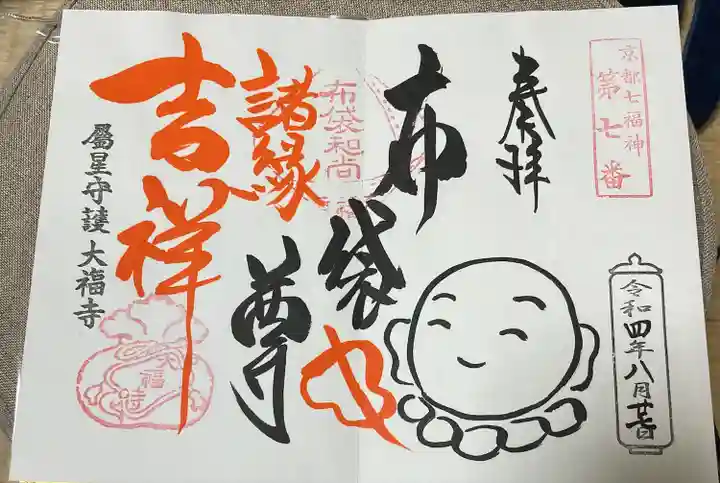 京都七福神
第七番
奉拝
令和四年八月廿日
布袋尊
布袋和尚
諸縁
吉祥
属星守護 大福寺
福